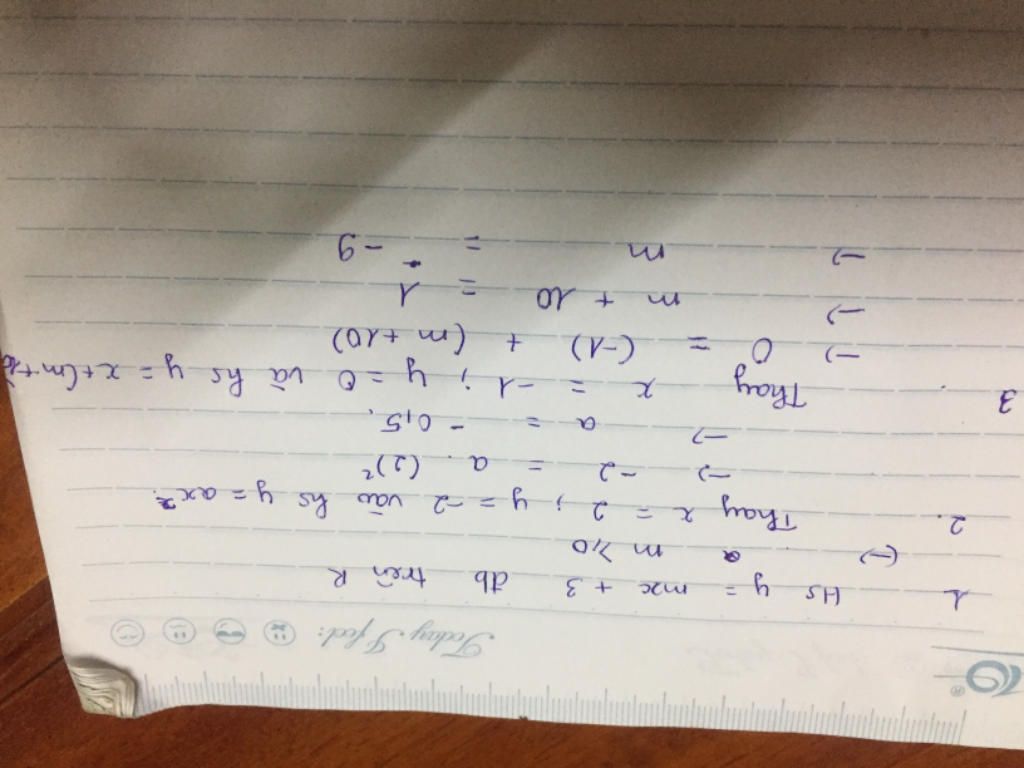 Today I feel:
1 Hs y = mx + 3 đb trên R
(→) m ≥ 0
2. Thay x = 2 ; y = -2 vào hs y = ax².
→ -2 = a. (2)²
→ a = - 0,5.
3. Thay x = -1 ; y = 0 và hs y = x + (m + 10
→ 0 = (-1) + (m + 10)
→ m + 10 = 1
→ m = -9